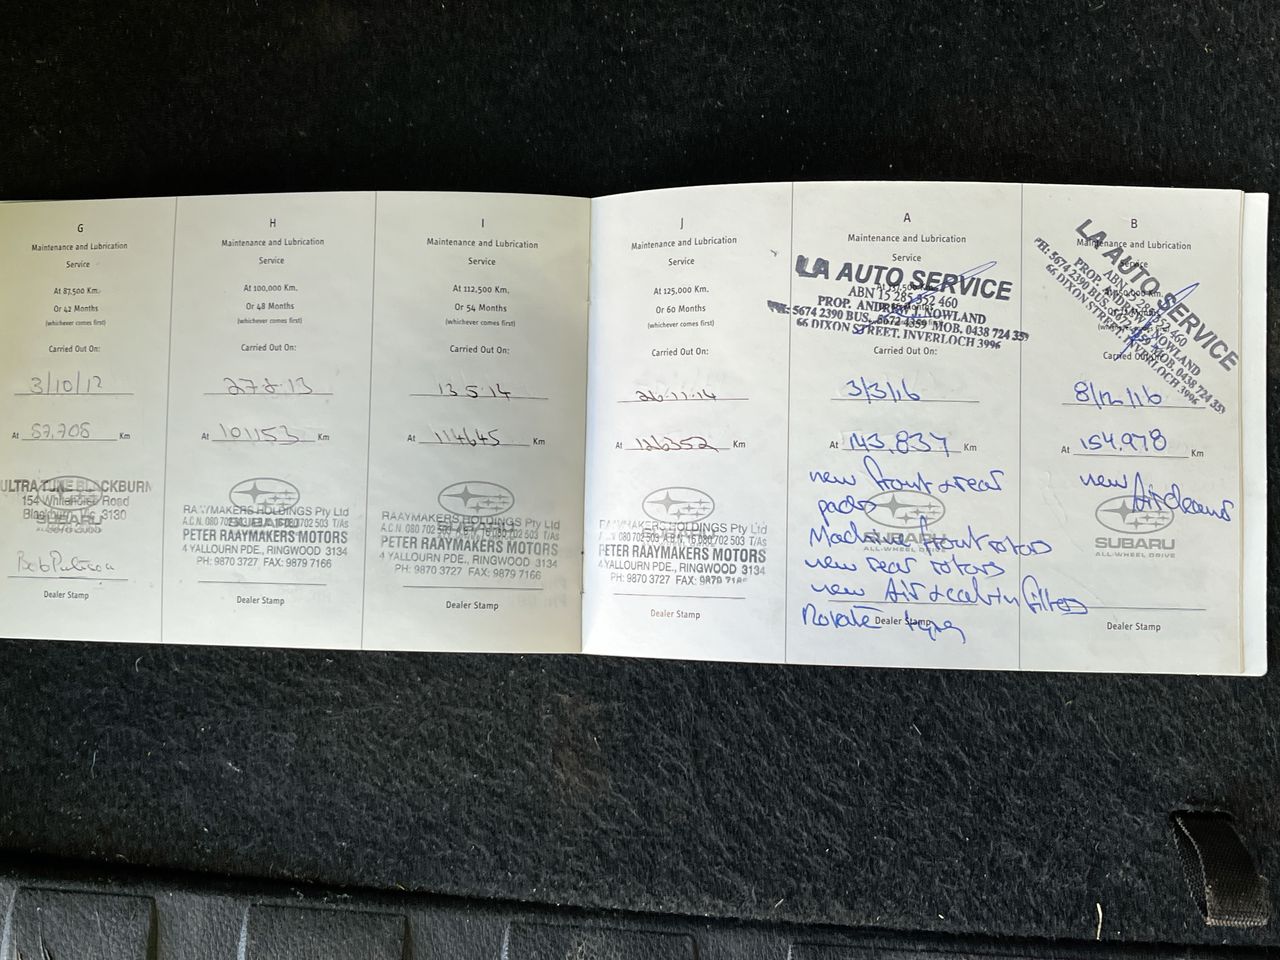 G
Maintenance and Lubrication
Service
At 87,500 Km.
Or 42 Months
(whichever comes first)
Carried Out On:
3/10/12
At 87,708 Km
ULTRA TUNE BLACKBURN
154 Whitehorse Road
Blackburn Vic 3130
SUBARU
Dealer Stamp
H
Maintenance and Lubrication
Service
At 100,000 Km.
Or 48 Months
(whichever comes first)
Carried Out On:
At 101153 Km
RAAYMAKERS HOLDINGS Pty Ltd
A.C.N. 080 702 503 T/As
PETER RAAYMAKERS MOTORS
4 YALLOURN PDE., RINGWOOD 3134
PH: 9870 3727 FAX: 9879 7166
Dealer Stamp
I
Maintenance and Lubrication
Service
At 112,500 Km.
Or 54 Months
(whichever comes first)
Carried Out On:
13.5.14
At 114645 Km
RAAYMAKERS HOLDINGS Pty Ltd
A.C.N. 080 702 503 T/As
PETER RAAYMAKERS MOTORS
4 YALLOURN PDE., RINGWOOD 3134
PH: 9870 3727 FAX: 9879 7166
Dealer Stamp
J
Maintenance and Lubrication
Service
At 125,000 Km.
Or 60 Months
(whichever comes first)
Carried Out On:
26.11.14
At 126352 Km
RAAYMAKERS HOLDINGS Pty Ltd
A.C.N. 080 702 503 T/As
PETER RAAYMAKERS MOTORS
4 YALLOURN PDE., RINGWOOD 3134
PH: 9870 3727 FAX: 9879 7166
Dealer Stamp
A
Maintenance and Lubrication
Service
LA AUTO SERVICE
ABN 15 285 352 460
PROP. ANDREW J. NOWLAND
PH: 5674 2390 BUS. 5672 4359 MOB. 0438 724 359
66 DIXON STREET. INVERLOCH 3996
Carried Out On:
3/3/16
At 143,837 Km
new front & rear
pads
Machine front rotors
new rear rotors
new Air & cabin filters
Rotate tyres
SUBARU
ALL-WHEEL DRIVE
Dealer Stamp
B
Maintenance and Lubrication
Service
LA AUTO SERVICE
ABN 15 285 352 460
PROP. ANDREW J. NOWLAND
PH: 5674 2390 BUS. 5672 4359 MOB. 0438 724 359
66 DIXON STREET. INVERLOCH 3996
Carried Out On:
8/12/16
At 154,978 Km
new Aircleaner
SUBARU
ALL-WHEEL DRIVE
Dealer Stamp